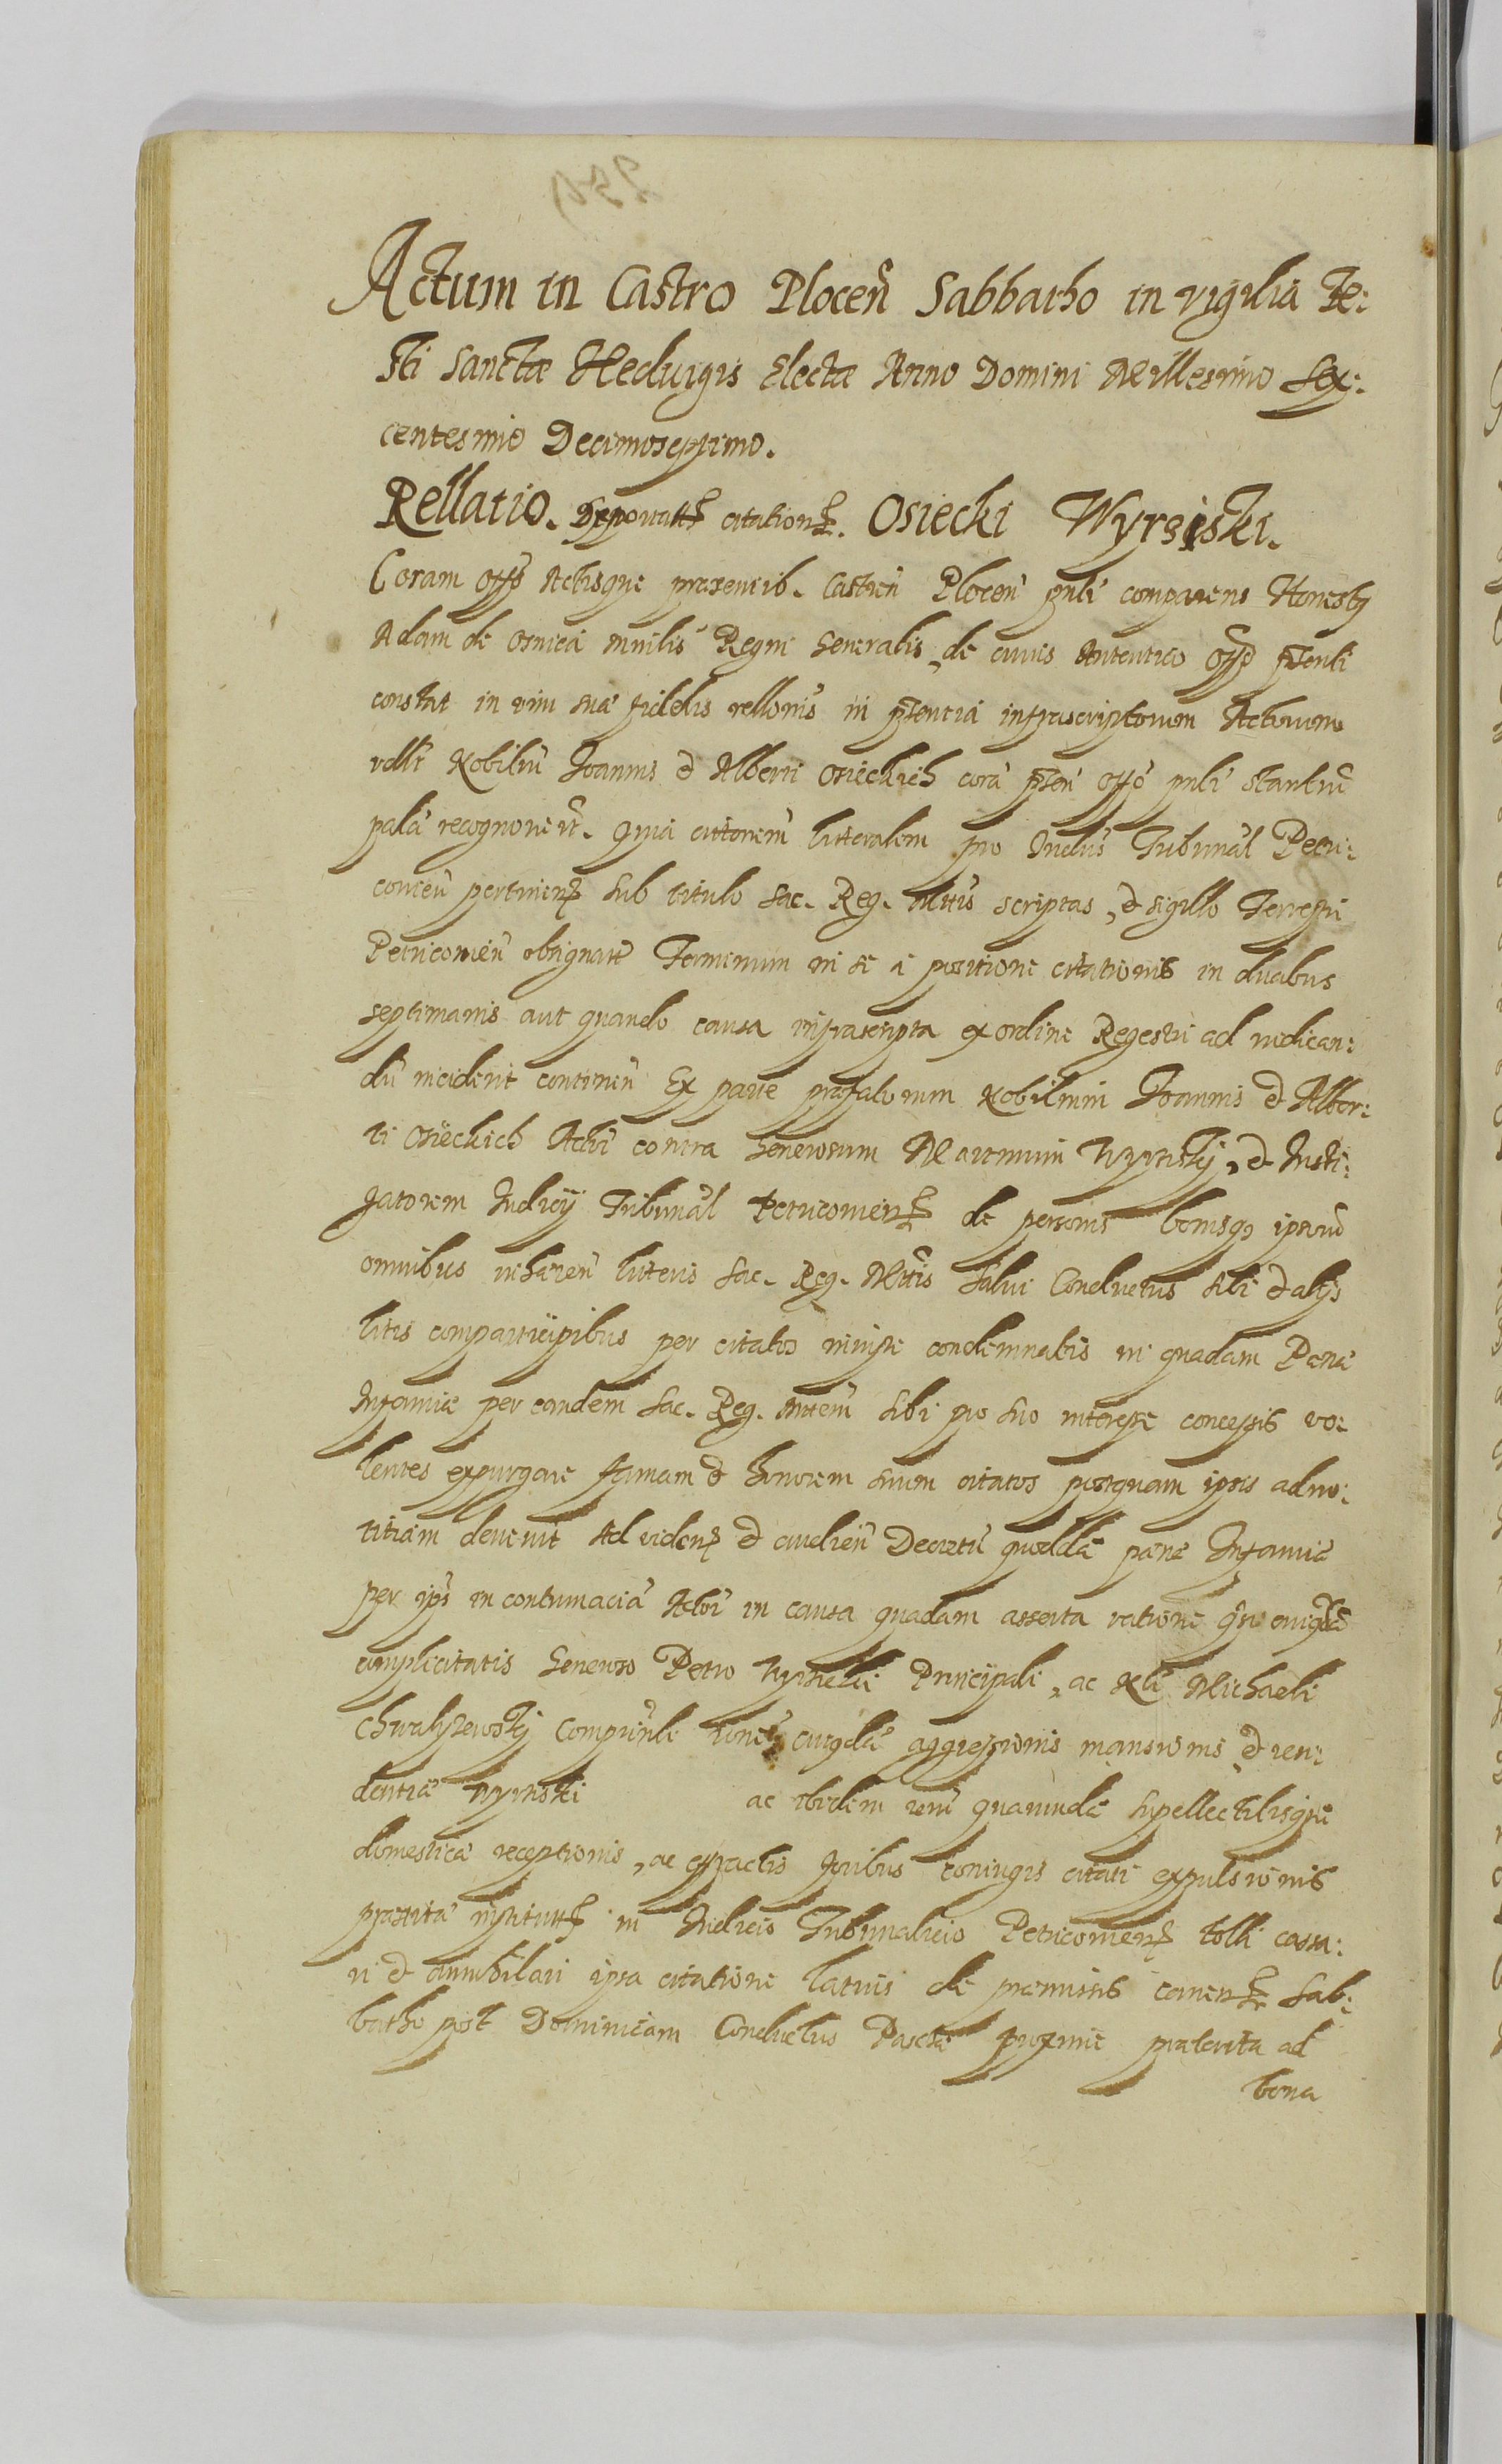 Actum in Castro Plocen̄ Sabbatho in vigilia Fe:
sti Sanctæ Hedvigis Electæ Anno Domini Millesimo Sex:
centesimo Decimoseptimo.
Rellatio. citation. Osiecki Wyrsiski.
Coram offō Actisque præsentib. Castren̄ Plocen̄ pnli comparens Honestꝫ
Adam de Osnica Regni Generalis, de cuius Autentico offō
constat in vim suæ fidelis rellonis in pn̄tentia infrascriptorum Actorum
vdlt Nobiliū Joannis & Alberti Osieckich corā offō pnli stantiū
palā recognovert. Quia literalem pro Judiciis Tribunal Petri:
couien̄ pertinen sub titulo Sac. Reg. Mttis scriptas, & sigillo Terrestri
Petricouien̄ obsignatt Terminum in se à positione citationis in duabus
septimanis aut quando causa infrascripta ex ordine Regestri ad iudican:
dū inciderit continen̄ Ex parte præfatorum Nobilium Joannis & Alber:
ti Osieckich contra Generosum Martinum Wyrsiskÿ, & Insti:
gatorem Judicij Tribunal Petricouien de personis bonisqꝫ ipsorū
omnibus inhæren̄ literis Sac. Reg. Mttis Salvi Conductus sibi & alijs
litis comparticipibus per citatos iniuste condemnatis in quadam Pena
Infamiæ per eandem Sac. Reg. Mttem sibi pro suo interesse concessis vo:
lentes expurgare famam & honorem suum citatos postquam ipsis ad no:
titiam devenit Ad viden & audien̄ Decretū quoddā pænæ Infamiæ
per ipsos in contumaciā in causa quadam asserta ratione
complicitatis Generoso Petro Principali, ac Michaeli
Chwalÿzewskÿ cuiusdā aggressionis mansionis & resi:
dentiæ Wyrsiski ac ibidem rerū quarundā supellectilisque
domesticæ receptionis, ac effractis foribus coniugis citati expulsionis
in Judicio Tribunalicio Petricouien tolli cassa:
ri & annihilari ipsa citatione latius de præmissis Sab:
batho post Dominicam Conductus Paschæ proxime præterita ad
bona